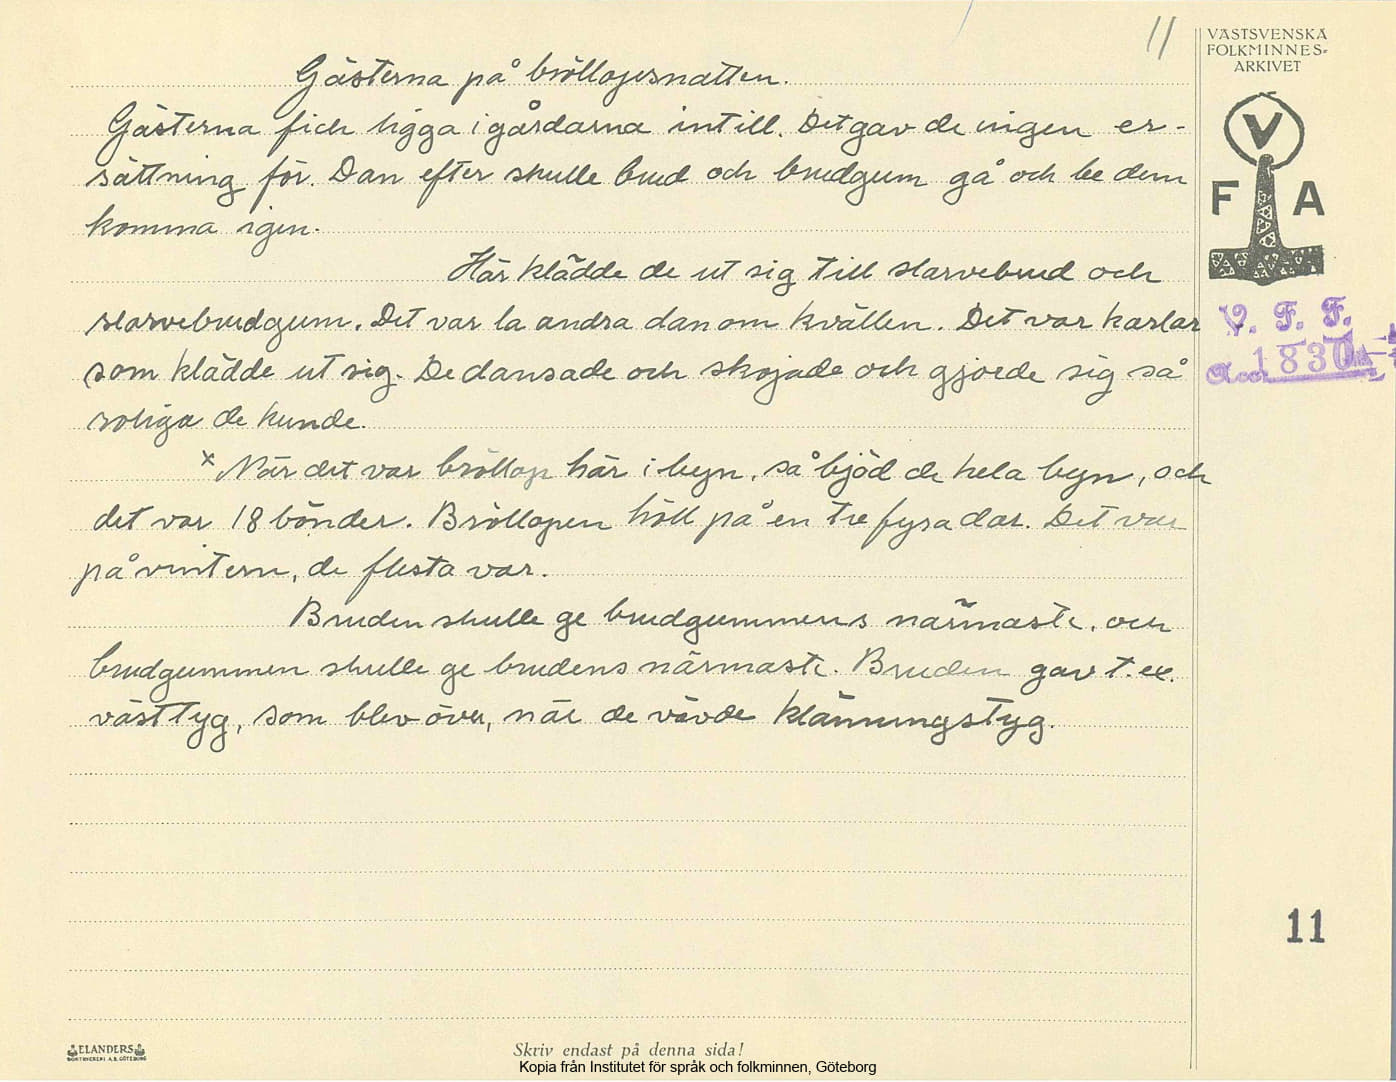 11
VÄSTSVENSKA
FOLKMINNES-
ARKIVET
V
F A
V. F. F.
1830
Gästerna på bröllopsnatten.
Gästerna fick ligga i gårdarna intill. Det gav de ingen er-
sättning för. Dan efter skulle brud och brudgum gå och be dem
komma igen.
Här klädde de ut sig till slarvebrud och
slarvebrudgum. Det var la andra dan om kvällen. Det var karlar
som klädde ut sig. De dansade och skojade och gjorde sig så
roliga de kunde.
x När det var bröllop här i byn, så bjöd de hela byn, och
det var 18 bönder. Bröllopen höll på en tre fyra dar. Det var
på vintern, de flesta var.
Bruden skulle ge brudgummens närmaste, och
brudgummen skulle ge brudens närmaste. Bruden gav t.ex.
västtyg, som blev över, när de vävde klänningstyg.
11
ELANDERS
BOKTRYCKERI A.B. GÖTEBORG
Skriv endast på denna sida!
Kopia från Institutet för språk och folkminnen, Göteborg